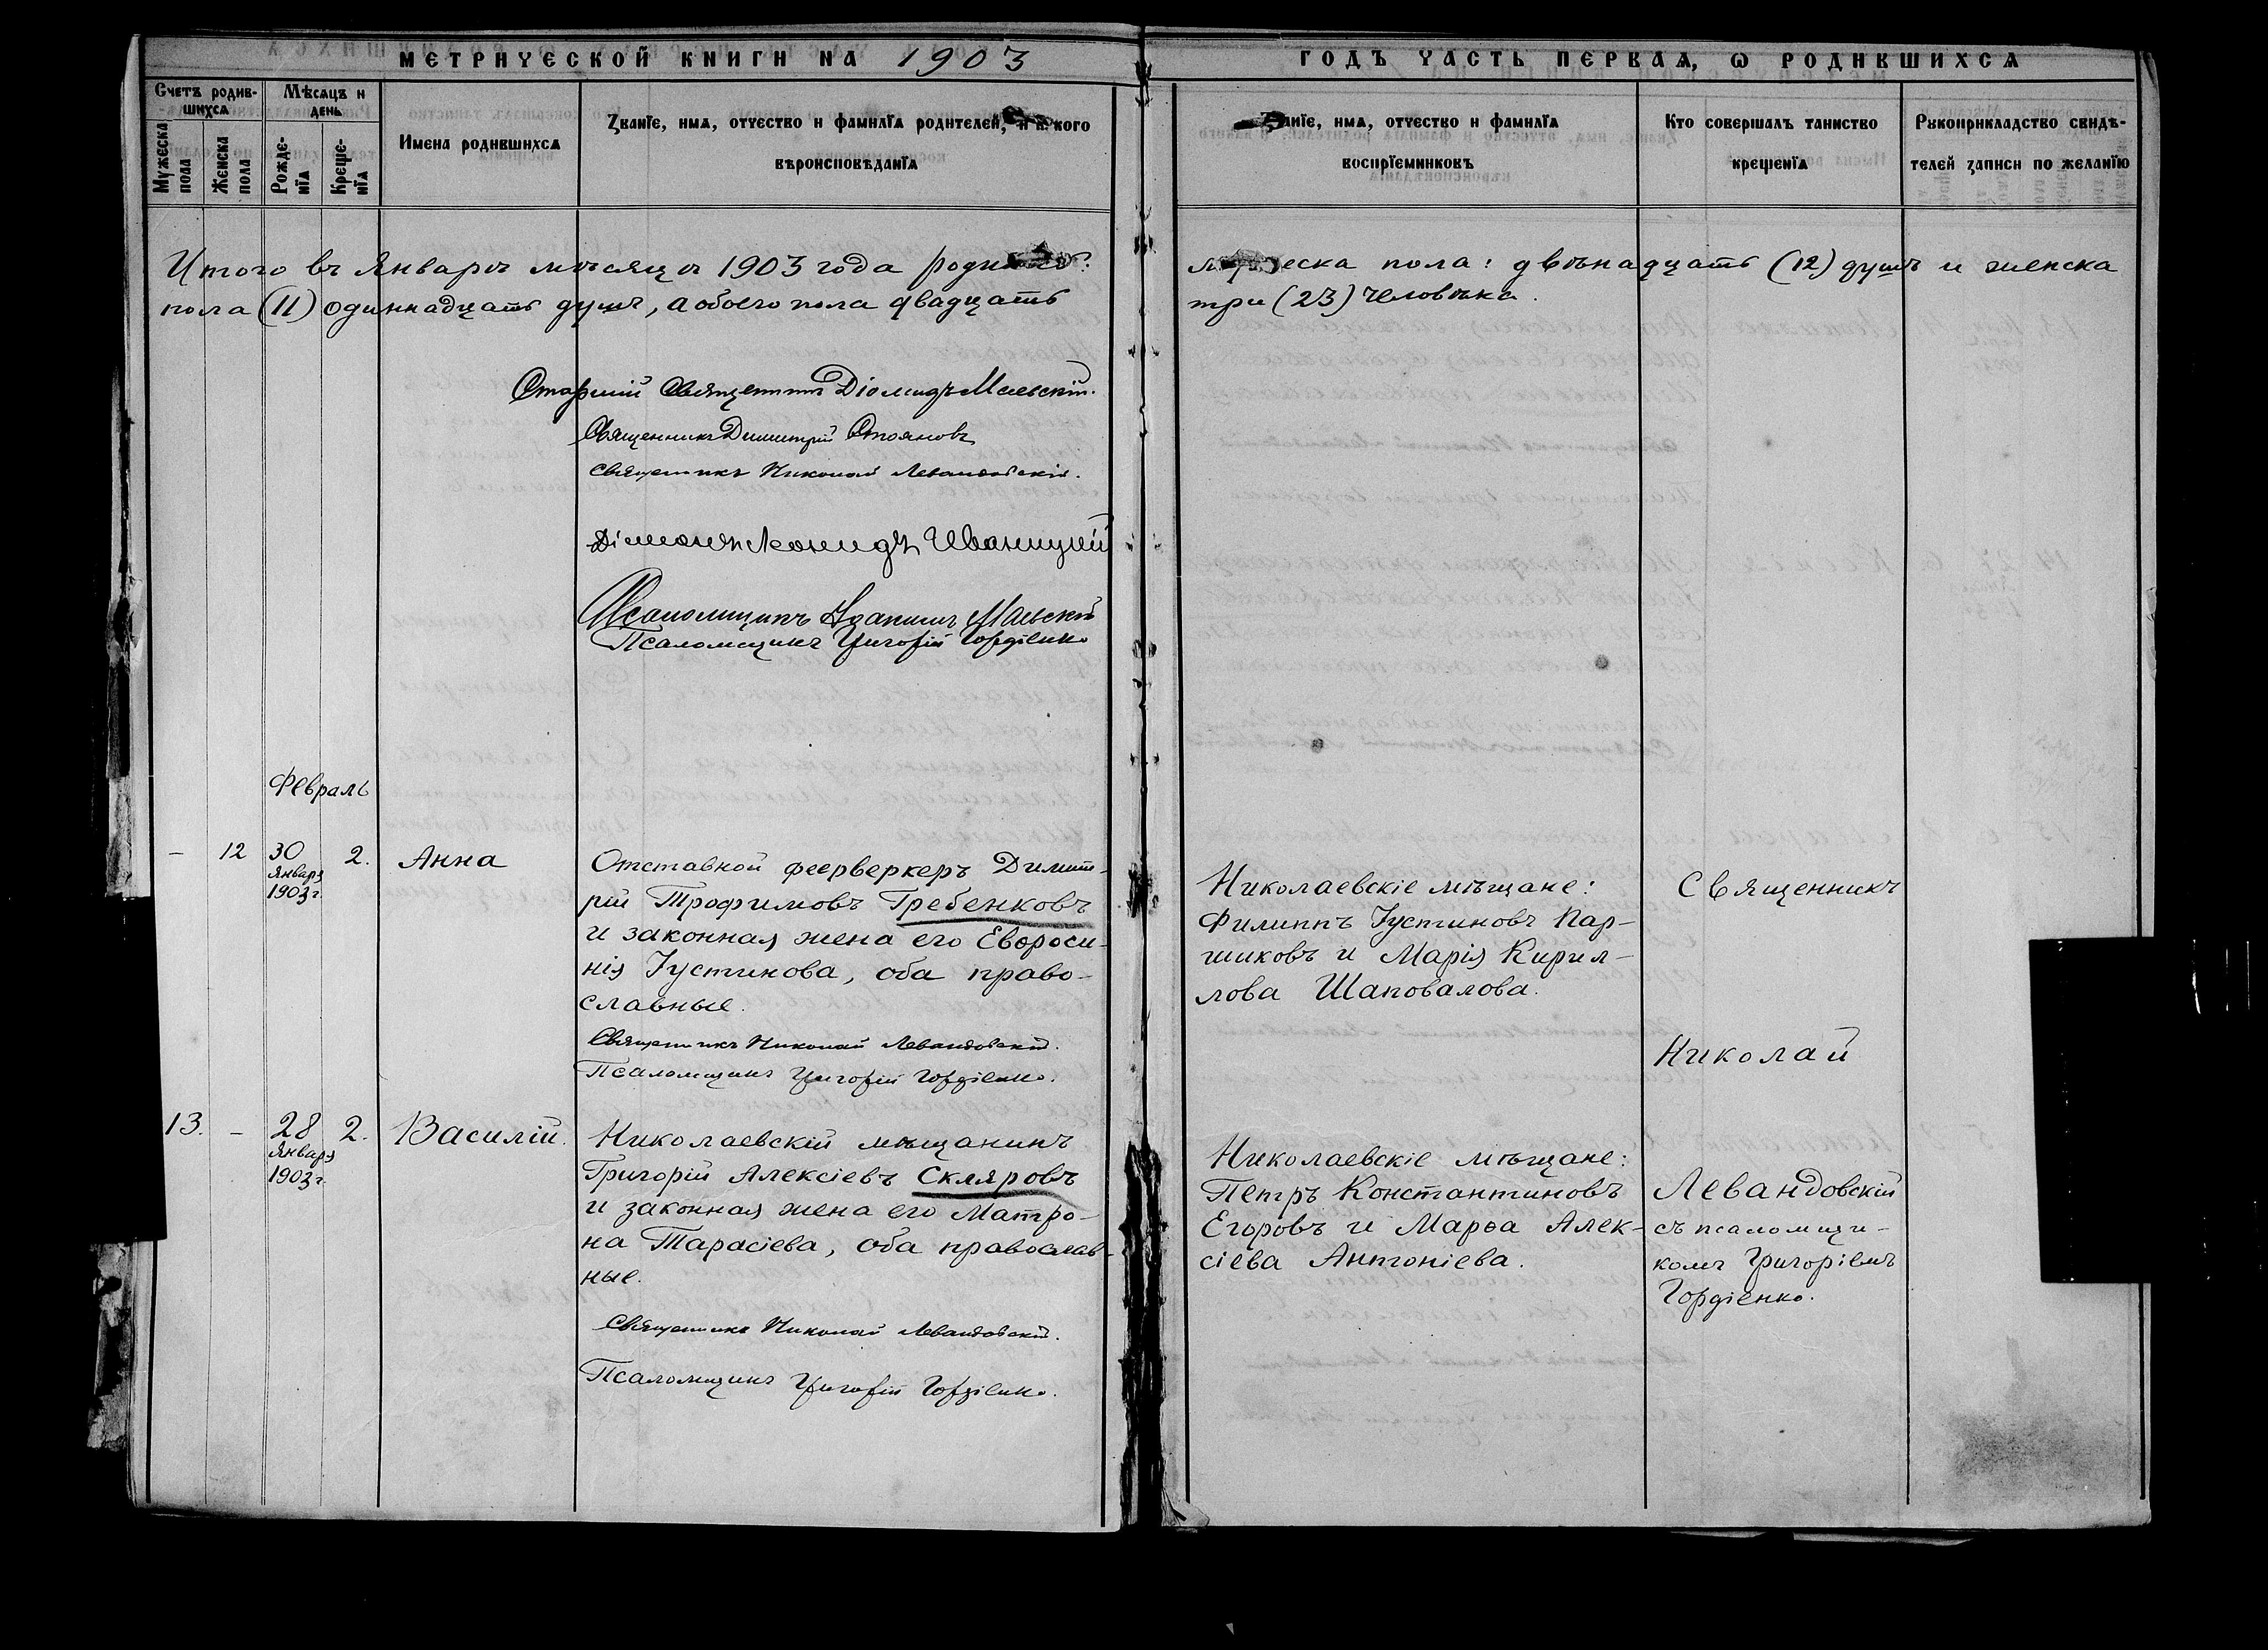 МЕТРИЧЕСКОЙ КНИГИ НА 1903
ГОДЪ ЧАСТЬ ПЕРВАЯ, Ѡ РОДИВШИХСѦ
Счетъ родив-
шихсѧ
Мѣсѧцъ и
день
Мужеска
пола
Женска
пола
Рожде-
нїѧ
Креще-
нїѧ
Имена родившихсѧ
Званїе, имѧ, отчество и фамилїѧ родителей, и к. кого
вѣроисповѣданїѧ
имѧ, отчество и фамилїѧ
воспрїемниковъ
Кто совершалъ таинство
крещенїѧ
Рукоприкладство свидѣ-
телей записи по желанїю
Итого въ Январѣ мѣсяцѣ 1903 года
пола (11) одиннадцать душъ, а обоего пола двадцать
пола: двѣнадцать (12) душъ и женска
три (23) человѣка.
Старшій Священникъ Діомидъ Маевскій.
Священникъ Димитрій Стояновъ
Священникъ Николай Левандовскій.
Діаконъ Леонидъ Иваницкій
Псаломщикъ Маевскій
Псаломщикъ Григорій Гордіенко
Февраль
— 12 30 2. Анна
Января
1903 г.
Отставной фееерверкеръ Димит-
рій Трофимовъ Гребенковъ
и законная жена его Евфроси-
нія Іустинова, оба право-
славные.
Священникъ Николай Левандовскій.
Псаломщикъ Григорій Гордіенко.
Николаевскіе мѣщане:
Филиппъ Іустиновъ Пар-
шиковъ и Марія Кирил-
лова Шаповалова.
Священникъ
Николай
13. — 28 2. Василій.
Января
1903 г.
Николаевскій мѣщанинъ
Григорій Алексіевъ Скляровъ
и законная жена его Матро-
на Тарасіева, оба православ-
ные.
Священникъ Николай Левандовскій.
Псаломщикъ Григорій Гордіенко.
Николаевскіе мѣщане:
Петръ Константиновъ
Егоровъ и Марѳа Алек-
сіева Антоніева.
Левандовскій
съ псаломщи-
комъ Григоріемъ
Гордіенко.